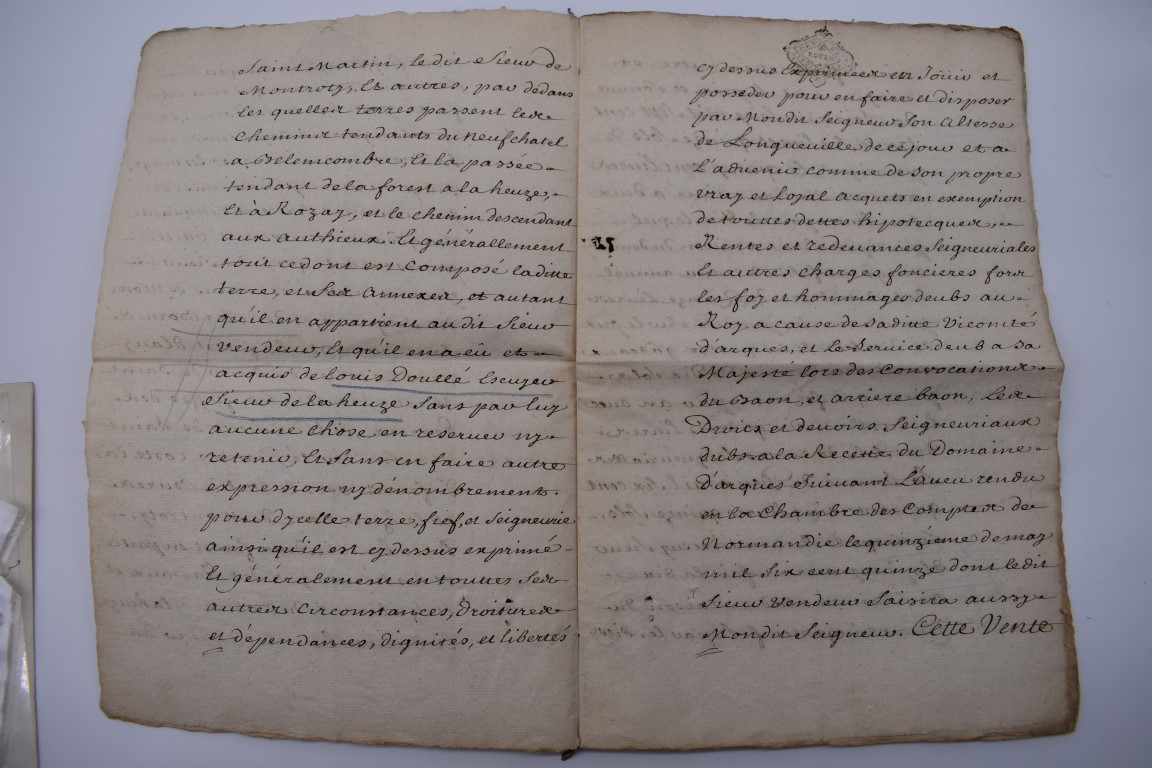 Saint Martin, le dit Sieur de
Montroty, Et autres, par dedans
les quelles terres passent les
chemins tendants du Neufchatel
a Belemcombre, Et la passée
tendant de la forest a la heuze,
Et à Rozay, et le chemin descendant
aux authieux. Et générallement
tout ce dont est Composé laditte
terre, et Ses Annexes, et autant
qu'il en appartient au dit Sieur
Vendeur, Et qu'il en a eû et
acquis de Louis Doullé Escuyer
Sieur de la heuze Sans par luy
aucune Chose en reserver ny
retenir, Et Sans en faire autre
expression ny dénombrement.
pour d'ycelle terre, fief, et Seigneurie
ainsi qu'il est cy dessus exprimé
Et généralement en touttes Ses
autres Circonstances, Droitures
et dépendances, dignités, et libertés
cy dessus Exprimées en Joüir et
posseder pour en faire et disposer
par Mondit Seigneur Son Altesse
de Longueville de ce jour et a
L'advenir comme de son propre
vray et Loyal acquets en exemption
de touttes dettes hipotecques,
Rentes et redevances Seigneuriales
Et autres charges foncieres fors
les foy et hommages deubs au
Roy a cause de sa ditte Vicomté
d'arques, et Le Service deub a Sa
Majeste lors des Convocations
du Baon, et arriere baon, Les
Droics et devoirs Seigneuriaux
dubs a la Recette du Domaine
D'arques Suivant L'aveu rendu
en la Chambre des Comptes de
Normandie le quinzième de may
mil Six cent quinze dont le dit
Sieur Vendeur Saisira aussy
Mondit Seigneur. Cette Vente